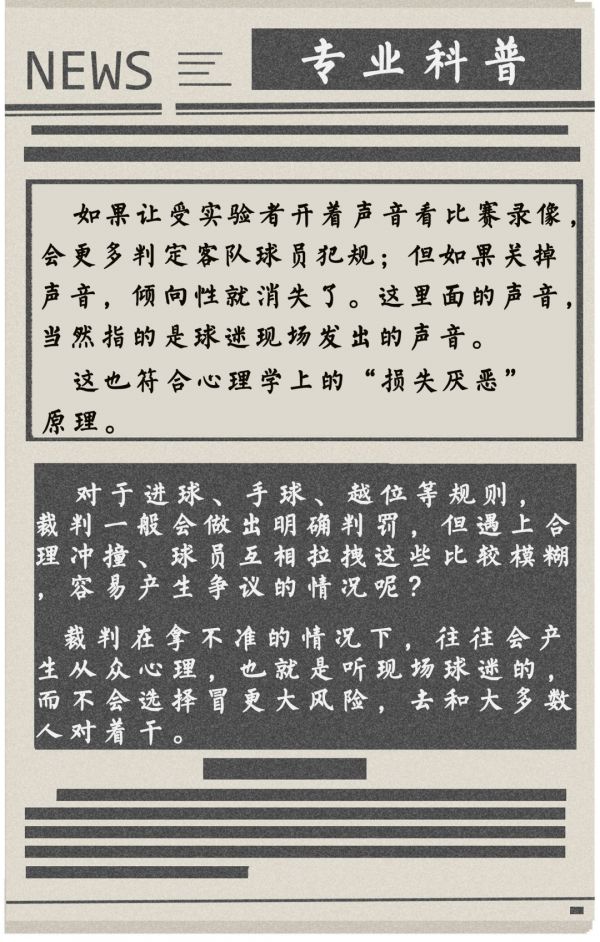 NEWS
专业科普
如果让受实验者开着声音看比赛录像，
会更多判定客队球员犯规；但如果关掉
声音，倾向性就消失了。这里面的声音，
当然指的是球迷现场发出的声音。
这也符合心理学上的“损失厌恶”
原理。
对于进球、手球、越位等规则，
裁判一般会做出明确判罚，但遇上合
理冲撞、球员互相拉拽这些比较模糊
，容易产生争议的情况呢？
裁判在拿不准的情况下，往往会产
生从众心理，也就是听现场球迷的，
而不会选择冒更大风险，去和大多数
人对着干。